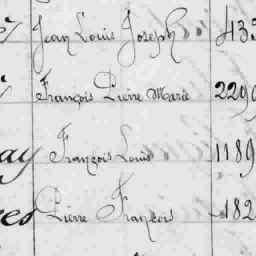 Jean Louis Joseph 433
François Pierre Marie 229
François Louis 1189
Pierre François 182